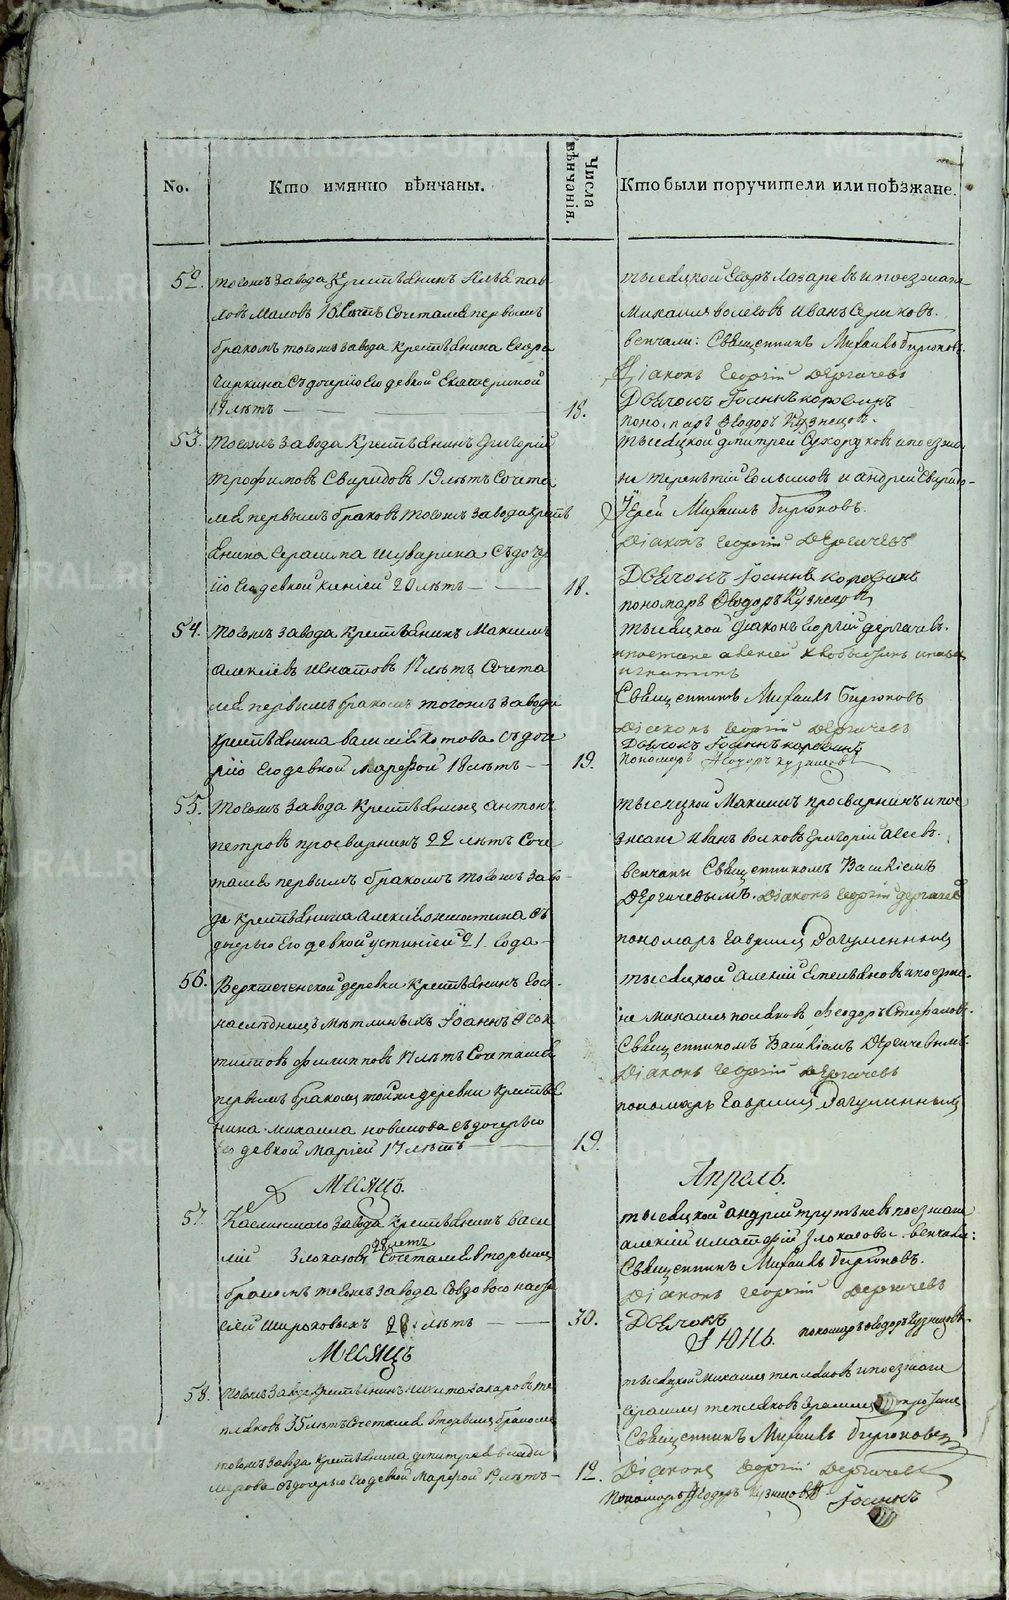 No.
Кто имянно вѣнчаны.
Числа вѣнчанія.
Кто были поручители или поѣзжане.
52. тогожъ завода крестьянинъ Илья пав-
ловъ Маловъ 18 лѣтъ Сочетался первымъ
бракомъ тогожъ завода крестьянина Егора
Чиркина съ дочерію Его девкой Екатериной
19 лѣтъ
18.
тысяцкой Егоръ Лазаревъ и поезжаня
Михаила волеговъ Иванъ Серикова.
венчали: Священникъ Михаилъ Бирюковъ
Діаконъ Георгій Дергачевъ
Дьячокъ Іоаннъ коровинъ
пономарь Ѳеодоръ Кузнецовъ.
53. Тогожъ завода Крестьянинъ Григорій
трофимовъ Свиридовъ 19 лѣтъ Сочета
лся первымъ браковъ тогожъ завода крест
янина Герасима Шуварина съ дочер
ію Его девкой Ксеніей 20 лѣтъ
18.
тысяцкой дмитрей Сухоруковъ и поезжа
не терентій большовъ и андрей Свиридо-
Іерей Михаилъ Бирюковъ.
Діаконъ Георгій Дергачевъ
Дьячокъ Іоаннъ коровинъ
пономарь Ѳеодоръ Кузнецовъ
54. тогожъ завода крестьянинъ Максимъ
алексіевъ игнатовъ 17 лѣтъ Сочета
лся первымъ бракомъ тогожъ завода
крестьянина василія Котова съ доче
рію Его девкой Марѳой 18 лѣтъ
19.
тысяцкой діаконъ Георгій дергачевъ.
и поезжане алексей
игнатовъ
Священникъ Михаилъ Бирюковъ
Діаконъ Георгій Дергачевъ
Дьячокъ Іоаннъ коровинъ
Пономарь Ѳеодоръ кузнецовъ
55. Тогожъ завода Крестьянинъ антонъ
петровъ просвирнинъ 22 лѣтъ Соче
тался первымъ бракомъ тогожъ заво-
да крестьянина алексія съ
дочерью Его девкой устиніей 21 года
тысяцкой Максимъ просвирнинъ и пое
зжане Иванъ волковъ Григорій
венчаны Священникомъ Василіемъ
Дергачевымъ. Діаконъ Георгій дергачевъ
пономарь Гавріилъ
56. Верхтеченской деревни крестьянинъ Госп.
наследницъ Мѣтлиныхъ Іоаннъ Ѳеок
тистовъ филипповъ 17 лѣтъ Сочетался
первымъ бракомъ той же деревни крестья
нина Михаила новикова съ дочерью
Его девкой Маріей 17 лѣтъ
19.
тысяцкой алексій Емельяновъ и поезжа-
не михаила поляковъ Ѳеодоръ Стефановъ.
Священникомъ Василіемъ Дергачевымъ.
Діаконъ Георгій Дергачевъ
пономарь Гавріилъ
Месяцъ.
Апрель.
57. Каслинскаго завода крестьянинъ васи
лій Злоказовъ 28 летъ Сочетался вторымъ
бракомъ тогожъ завода
Широховыхъ 28 лѣтъ
30.
тысяцкой андрей трутневъ поезжане
алексій и матѳій Злоказовы. венчали:
Священникъ Михаилъ Бирюковъ.
Діаконъ Георгій Дергачевъ
Дьячокъ
пономарь Ѳеодоръ Кузнецовъ
Месяцъ
Іюнь.
58. тогожъ завода крестьянинъ никита захаровъ те
пляковъ 35 лѣтъ Сочетался вторымъ бракомъ
тогожъ завода крестьянина димитрія
съ дочерью Его девкой Марѳой лѣтъ
12.
тысяцкой Михаила тепляковъ и поезжане
Герасимъ тепляковъ
Священникъ Михаилъ Бирюковъ
Діаконъ Георгій Дергачевъ
Пономарь Ѳеодоръ Кузнецовъ Іоаннъ
METRIKI.GASO-URAL.RU